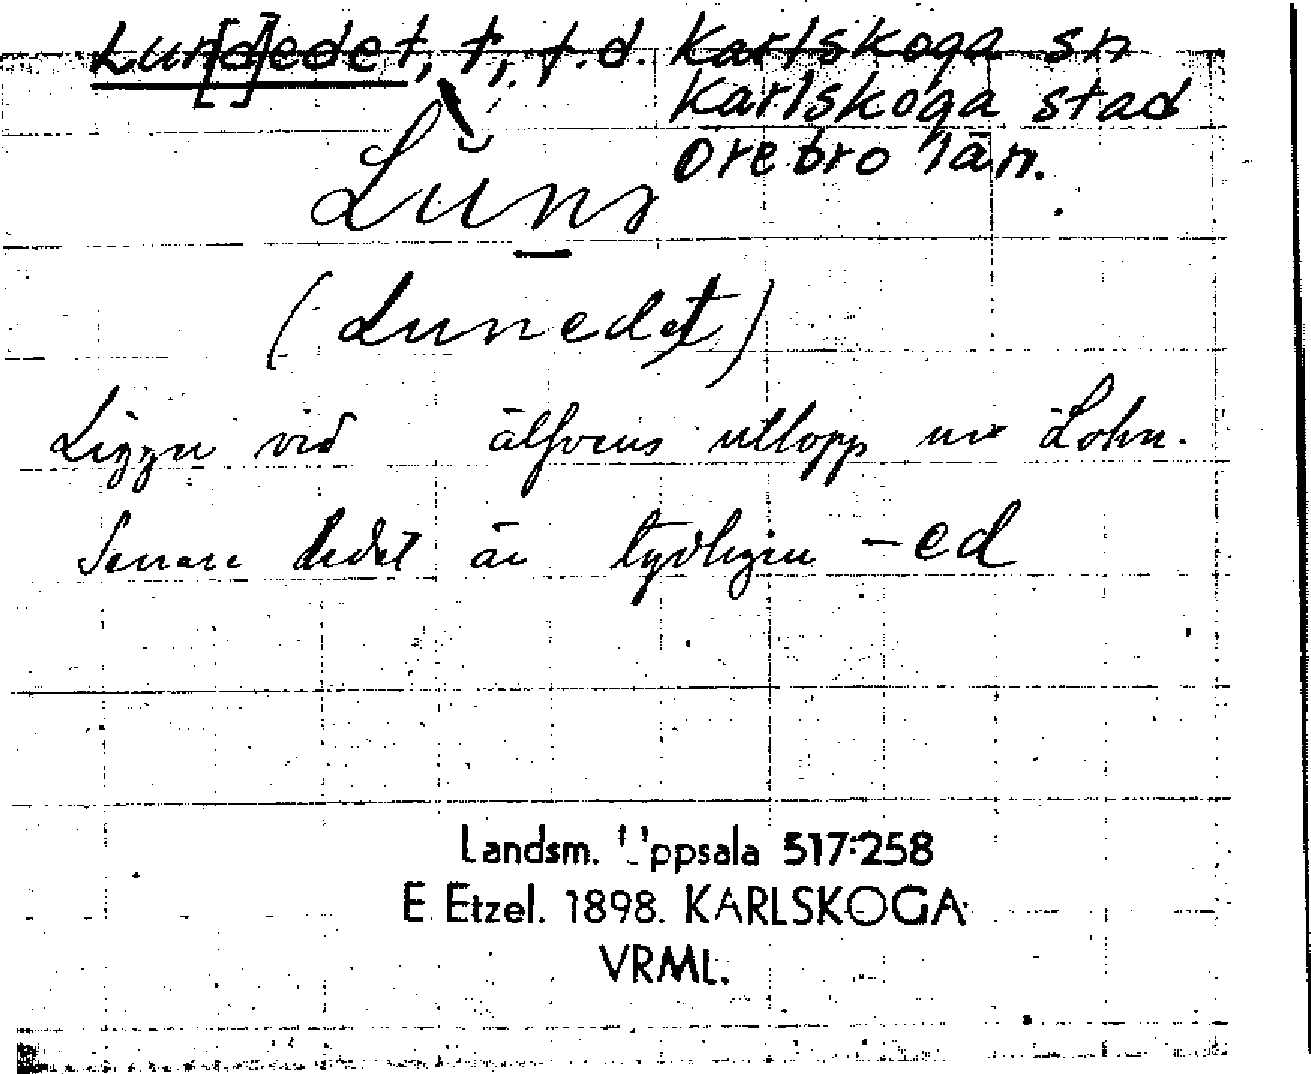 Lun[d]edet, t, f.d. Karlskoga sn
Karlskoga stad
Örebro län.
Lun
(Lunedet)
Ligger vid älfvens utlopp ur
Senare ledet är tydligen -ed
Landsm. Uppsala 517:258
E. Etzel. 1898. KARLSKOGA
VRML.